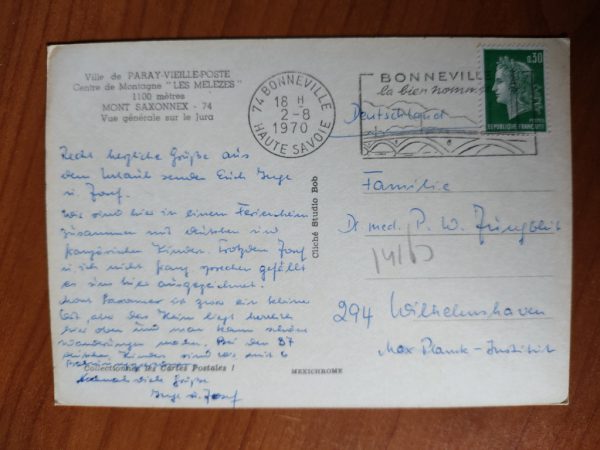 Ville de PARAY-VIEILLE-POSTE
Centre de Montagne "LES MELEZES"
1100 mètres
MONT SAXONNEX - 74
Vue générale sur le Jura
74 BONNEVILLE
18 H
2-8
1970
HAUTE SAVOIE
BONNEVILL
la bien nommée
0,30
REPUBLIQUE FRANÇAISE
Deutschland
Recht herzliche Grüße aus
dem Urlaub senden Euch Inge
u. Josef.
Wir sind hier in einem Ferienheim
zusammen mit deutschen und
französischen Kindern. Trotzdem Josef
u. ich nicht franz. sprechen gefällt
es uns hier ausgezeichnet.
ist zwar ein kleiner
Ort, aber das Heim liegt
hier oben und man kann schöne
Wanderungen machen. Bei den 37
deutschen Kindern sind wir mit 6
Nochmals viele Grüße
Inge u. Josef
Cliché Studio Bob
Collectionnez les Cartes Postales !
MEXICHROME
Familie
Dr. med. P. W. Jungblut
294 Wilhelmshaven
Max Planck-Institut